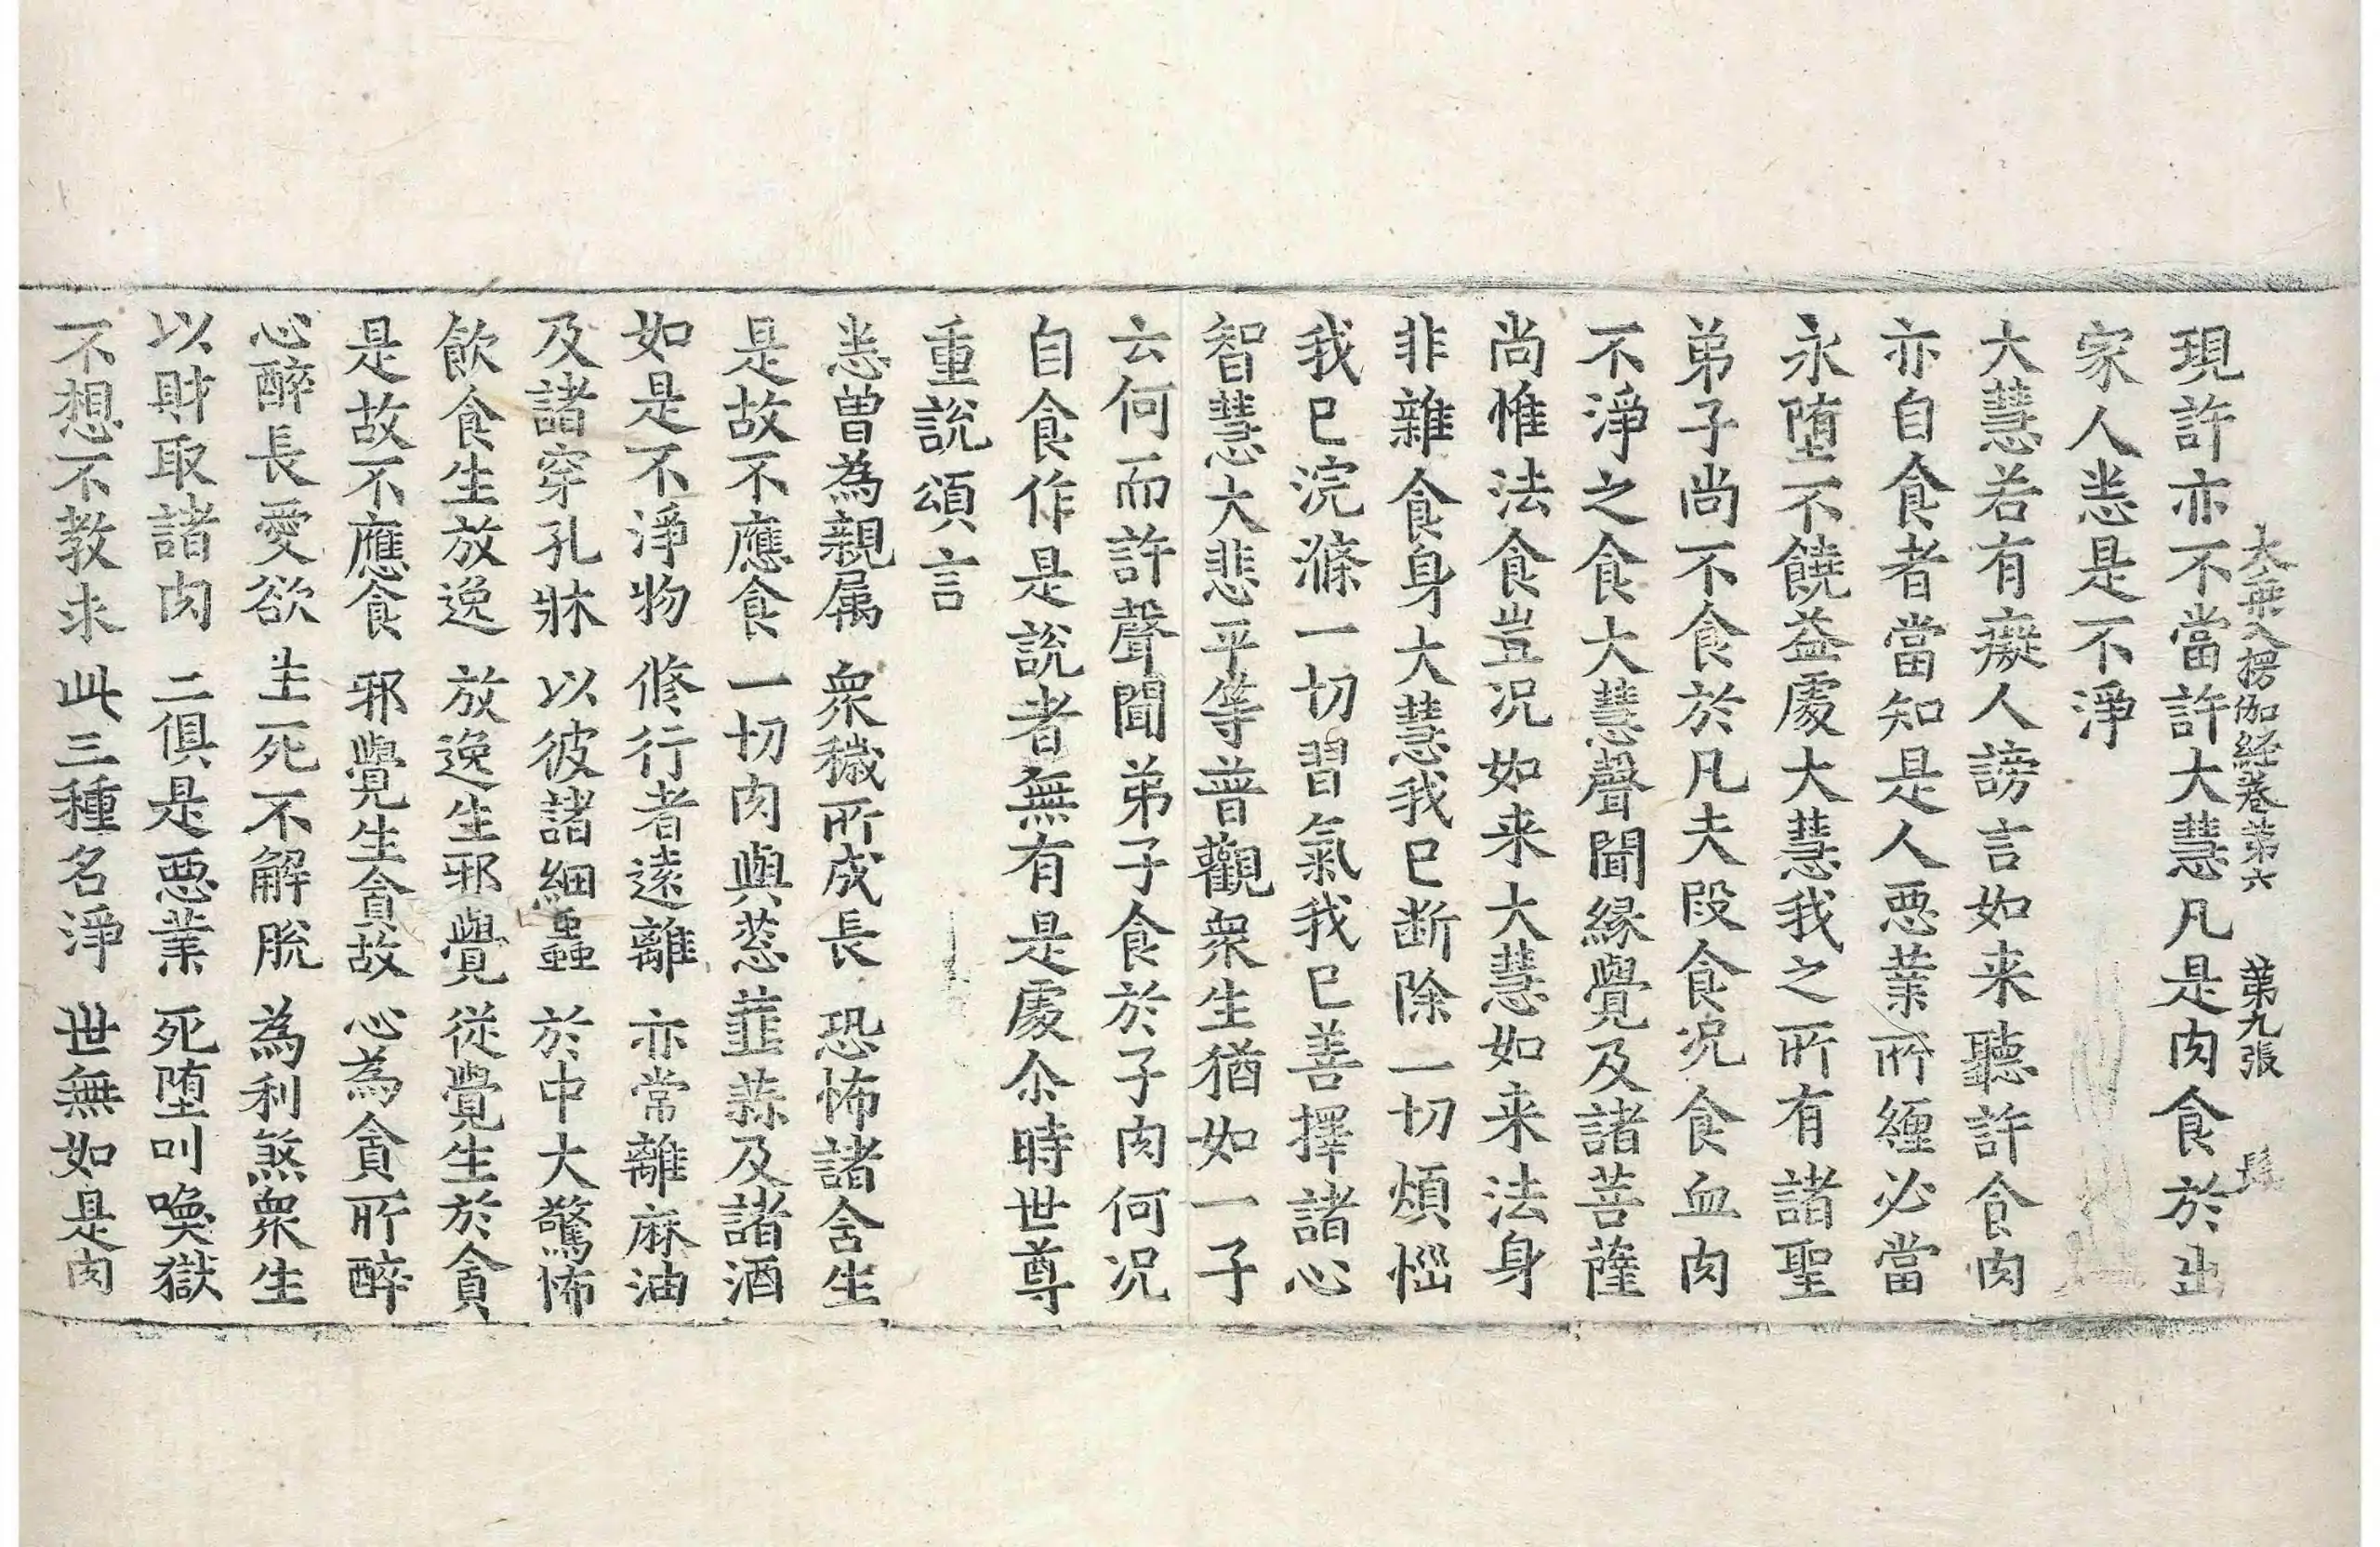 大乗入楞伽経卷第六 第九張 髟
現許亦不當許大慧凡是肉食於出
家人悉是不淨
大慧若有癡人謗言如来聽許食肉
亦自食者當知是人惡業所纏必當
永墮不饒益處大慧我之所有諸聖
弟子尚不食於凡夫段食况食血肉
不淨之食大慧聲聞緣覺及諸菩薩
尚惟法食豈况如来大慧如来法身
非雜食身大慧我已断除一切煩惱
我已浣滌一切習氣我已善擇諸心
智慧大悲平等普觀衆生猶如一子
云何而許聲聞弟子食於子肉何况
自食作是說者無有是處尒時世尊
重說頌言
悉曾為親属 衆穢所成長 恐怖諸含生
是故不應食 一切肉與葱 韮蒜及諸酒
如是不淨物 修行者遠離 亦常離麻油
及諸穿孔牀 以彼諸細蟲 於中大驚怖
飲食生放逸 放逸生邪覺 從覺生於貪
是故不應食 邪覺生貪故 心為貪所醉
心醉長愛欲 生死不解脫 為利煞衆生
以財取諸肉 二俱是惡業 死墮叫喚獄
不想不教求 此三種名淨 世無如是肉